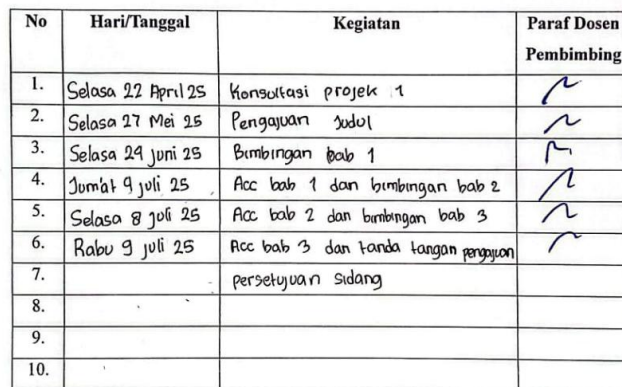 No Hari/Tanggal Kegiatan Paraf Dosen Pembimbing
1. Selasa 22 April 25 Konsultasi projek 1
2. Selasa 27 Mei 25 Pengajuan Judul
3. Selasa 24 Juni 25 Bimbingan bab 1
4. Jum'at 4 juli 25 Acc bab 1 dan bimbingan bab 2
5. Selasa 8 Juli 25 Acc bab 2 dan bimbingan bab 3
6. Rabu 9 juli 25 Acc bab 3 dan tanda tangan pengajuan
7. persetujuan sidang
8.
9.
10.